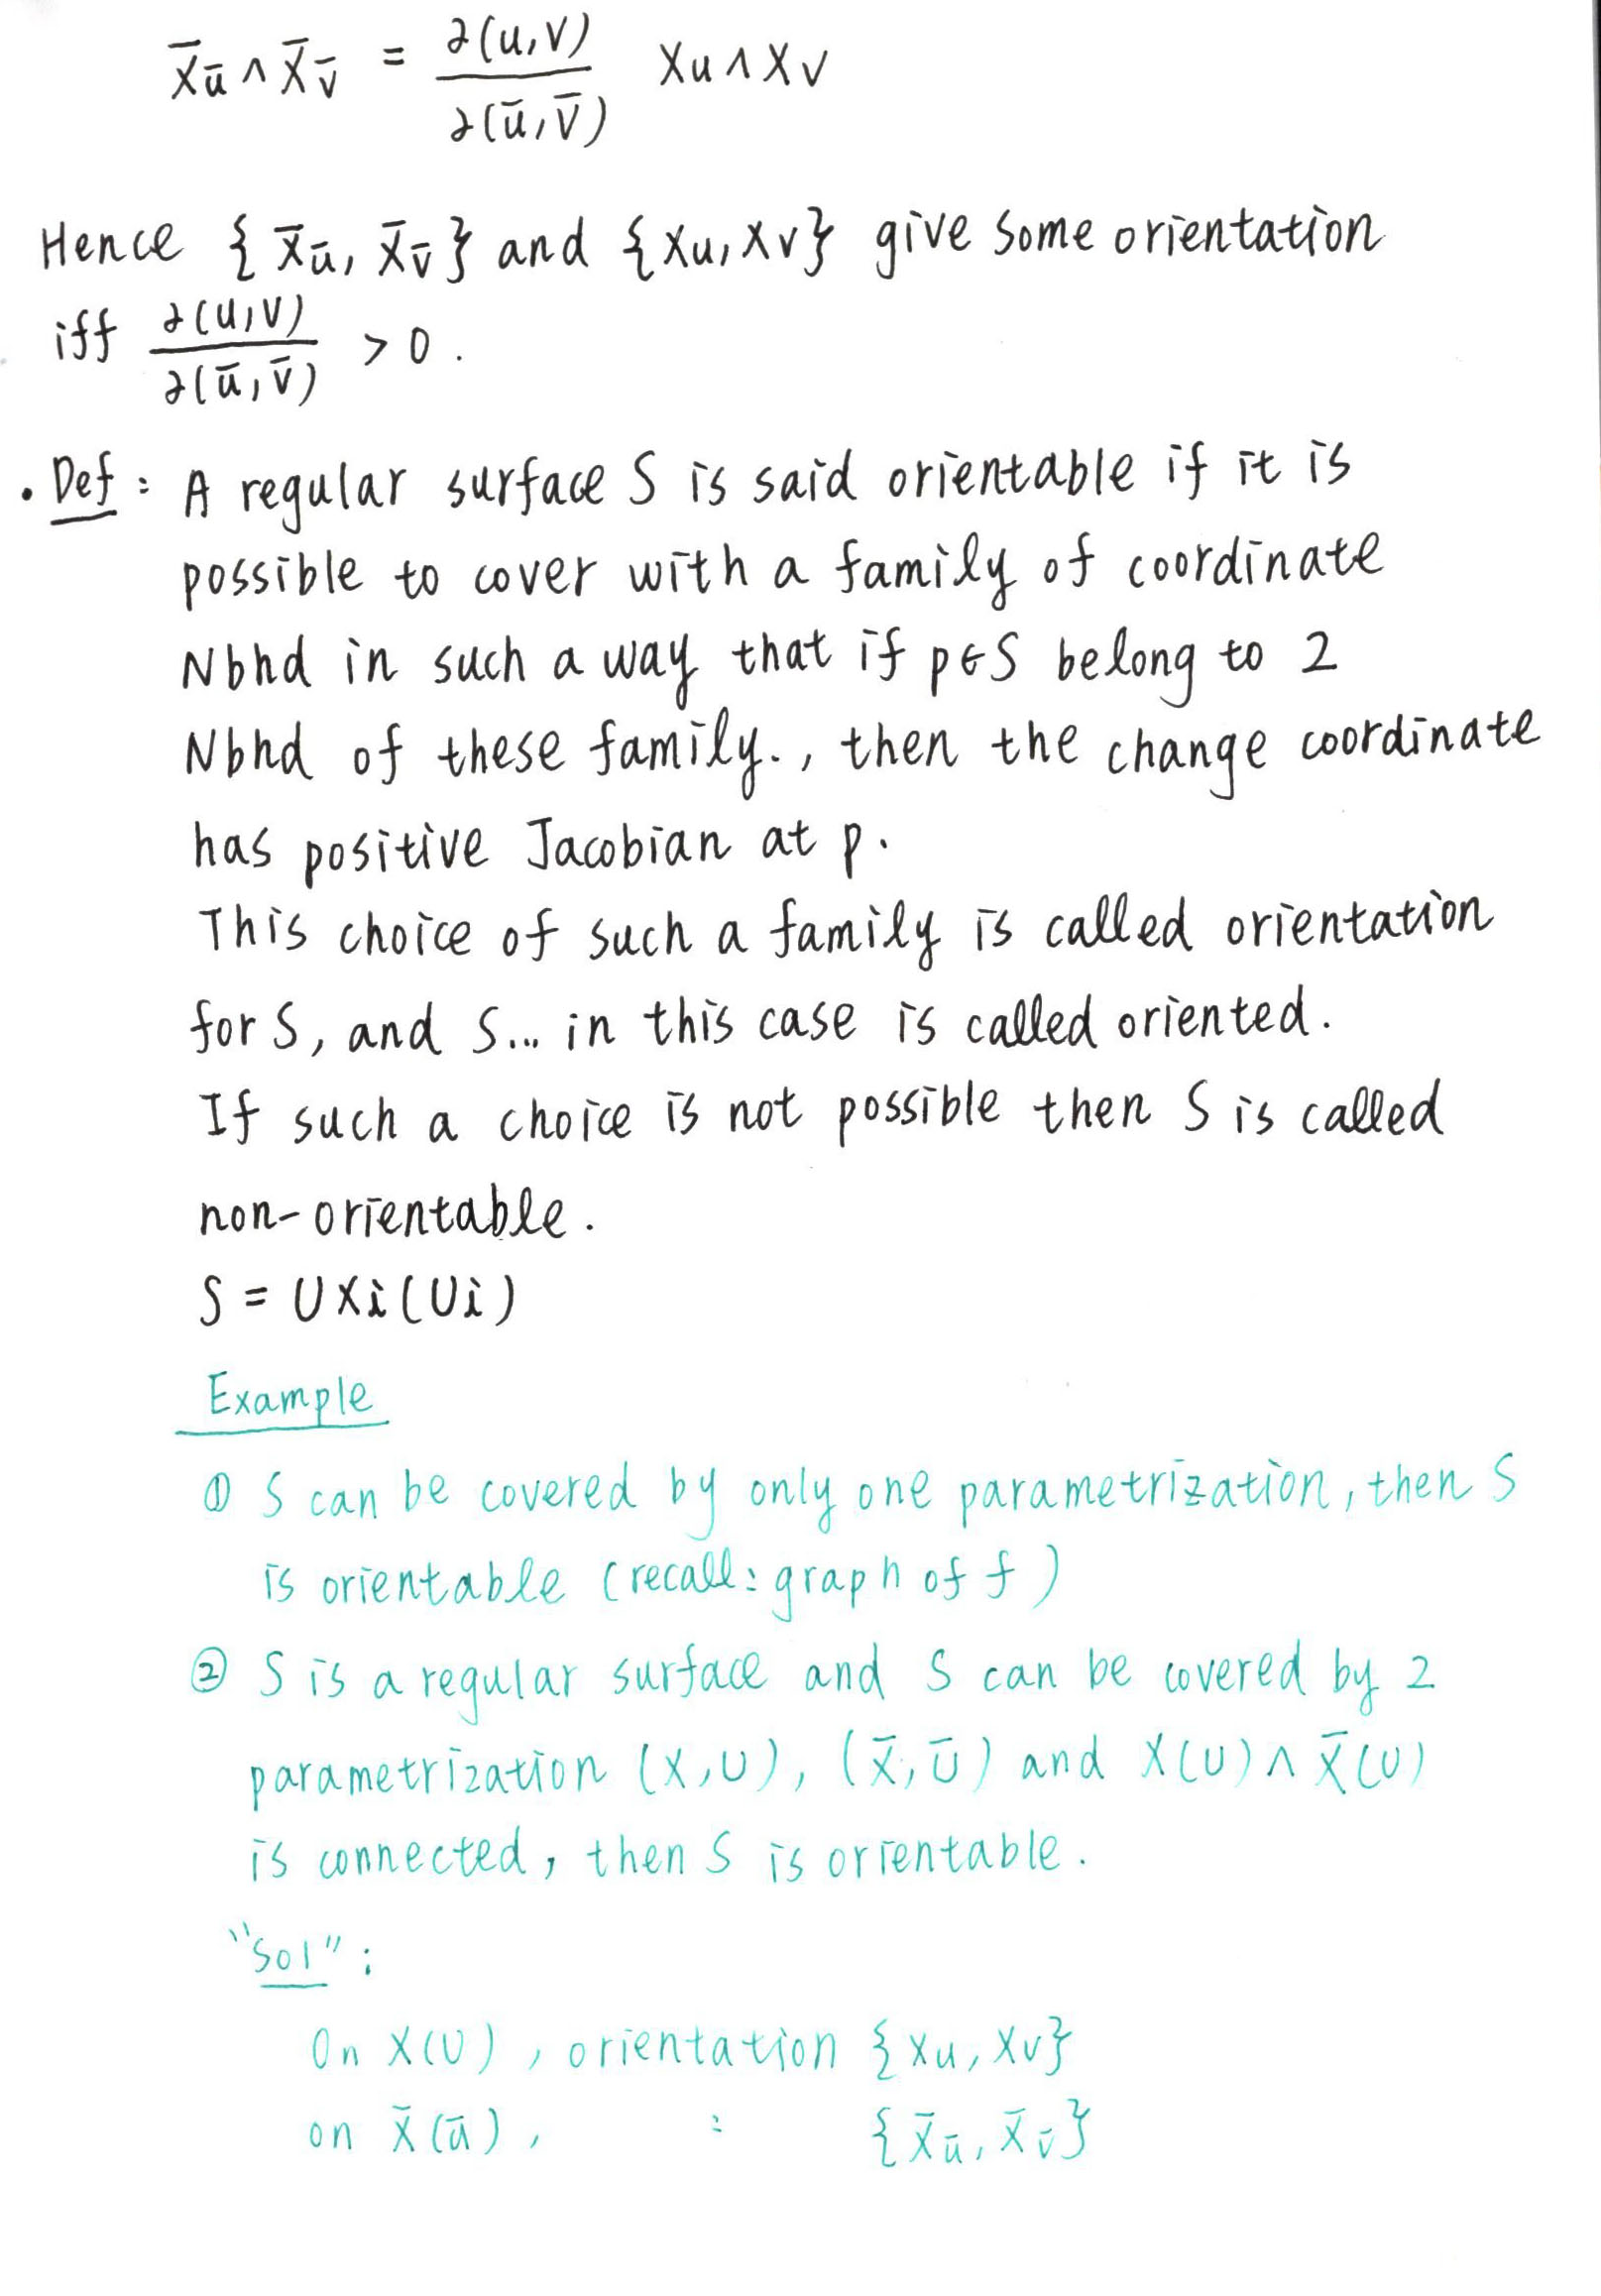 X̄ū ∧ X̄v̄ = ∂(u,v)/∂(ū,v̄) Xu∧Xv
Hence { X̄ū, X̄v̄ } and {Xu,Xv} give some orientation
iff ∂(u,v)/∂(ū,v̄) > 0 .
. Def : A regular surface S is said orientable if it is
possible to cover with a family of coordinate
Nbhd in such a way that if p∈S belong to 2
Nbhd of these family., then the change coordinate
has positive Jacobian at p.
This choice of such a family is called orientation
for S, and S... in this case is called oriented.
If such a choice is not possible then S is called
non-orientable.
S = ∪Xi(Ui)
Example
① S can be covered by only one parametrization, then S
is orientable (recall: graph of f )
② S is a regular surface and S can be covered by 2
parametrization (X,U), (X̄,Ū) and X(U) ∧ X̄(U)
is connected, then S is orientable.
"Sol" :
On X(U) , orientation {Xu, Xv}
on X̄(ū) , : {X̄ū, X̄v̄}